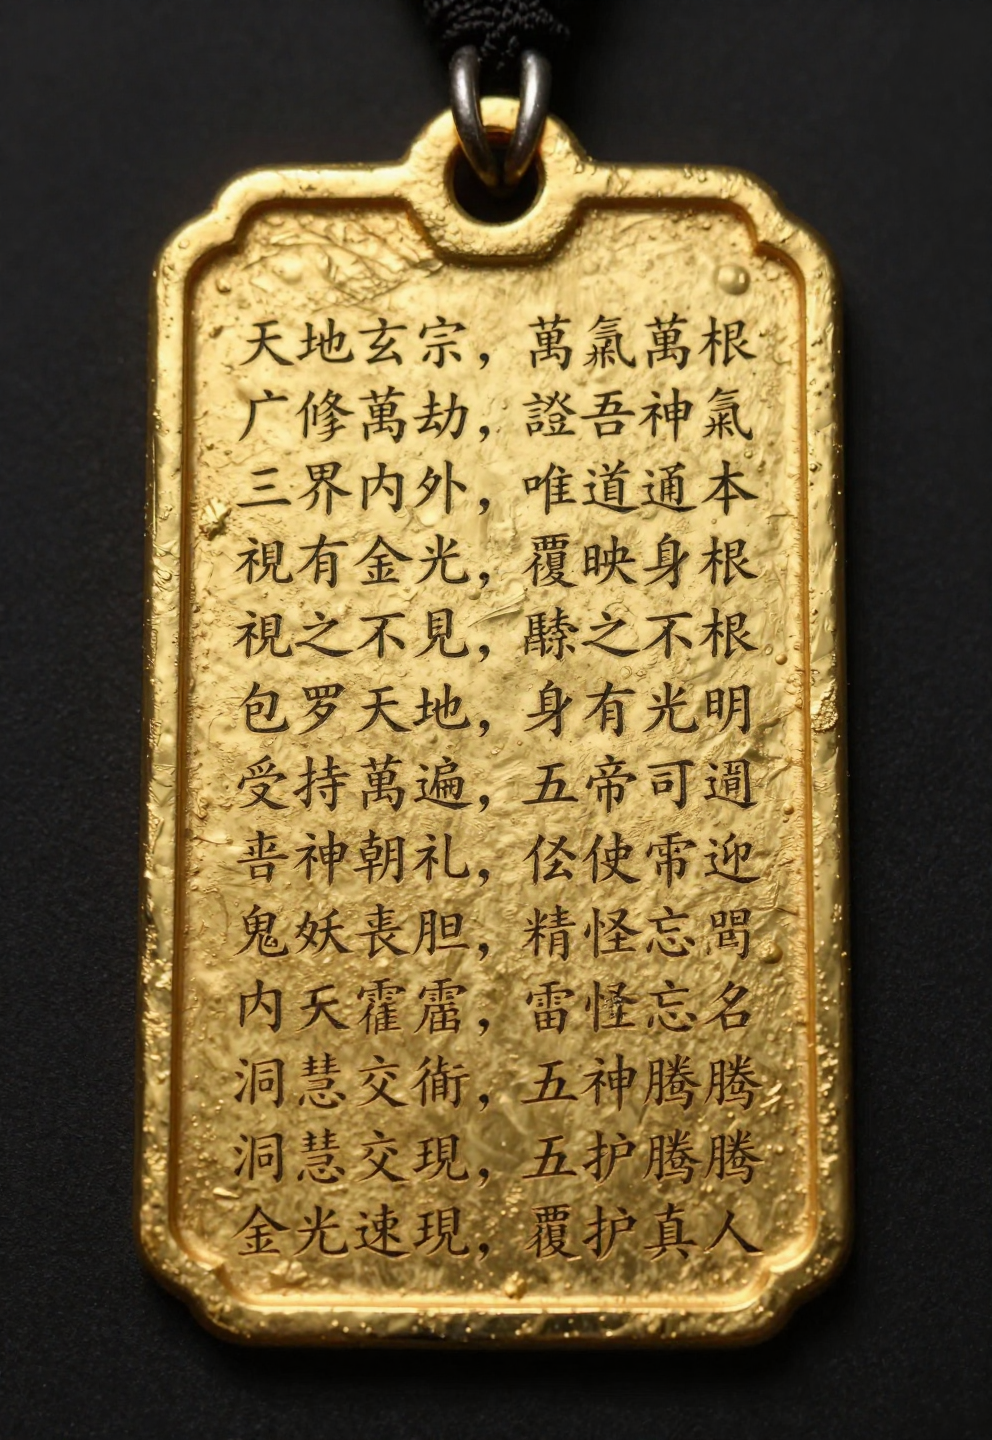 天地玄宗，萬氣萬根
广修萬劫，證吾神氣
三界内外，唯道通本
視有金光，覆映身根
視之不見，之不根
包罗天地，身有光明
受持萬遍，五帝司
神朝礼，使迎
鬼妖丧胆，精怪忘
内天霍，雷怪忘名
洞慧交，五神腾腾
洞慧交現，五护腾腾
金光速現，覆护真人